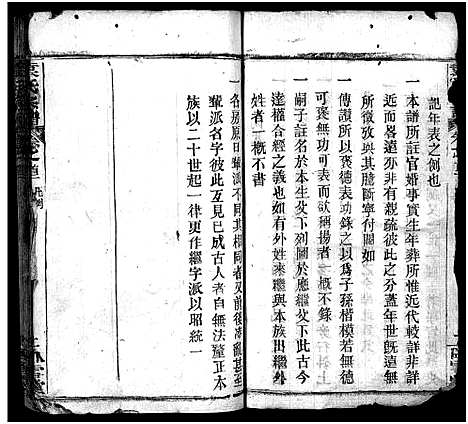 記年表之例也
一本譜所註官婚事實生年葬所惟近代較詳非詳
近而畧遠亦非有親疏彼此之分蓋年世旣遠無
所徵攷與其臆斷寧付闕如
一傳讚所以褒德表功錄之以爲子孫楷模若無德
可褒無功可表而欲稱揚者一概不錄
一嗣子名於本生父下列圖於應繼父下
達權合經之義也如有外姓來繼與本族出繼外
姓者一概不書
一各房原日輩派不同其相同者又前後
輩派名字彼此互見已成古人自無法釐正本
族以二十世起一律更作繼字派以昭統一